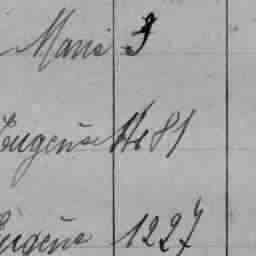 Marie 9
Eugénie 81
Eugénie 1227